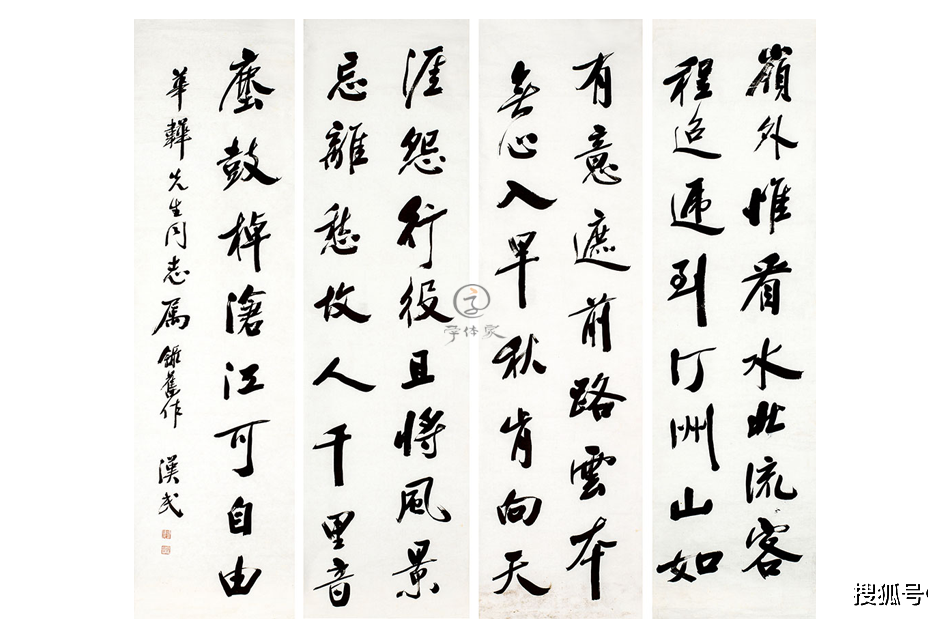 嶺外惟看水北流客
程迢遞到汀州山如
有意遮前路雲本
無心入早秋肯向天
涯怨行役且將風景
忘離愁故人千里音
塵鼓棹滄江可自由
華韡先生同志属錄舊作 漢民
字体家
搜狐号